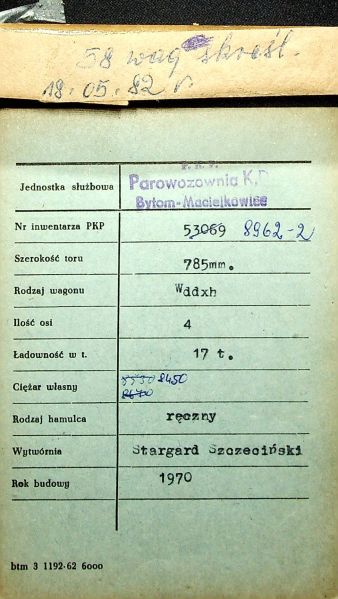 58 wag skreśl.
18.05.82 r
P.K.P.
Jednostka służbowa Parowozownia K.D
Bytom-Maciejkowice
Nr inwentarza PKP 53069 8962-2
Szerokość toru 785mm.
Rodzaj wagonu Wddxh
Ilość osi 4
Ładowność w t. 17 t.
Ciężar własny 8450
Rodzaj hamulca ręczny
Wytwórnia Stargard Szczeciński
Rok budowy 1970
btm 3 1192-62 6000